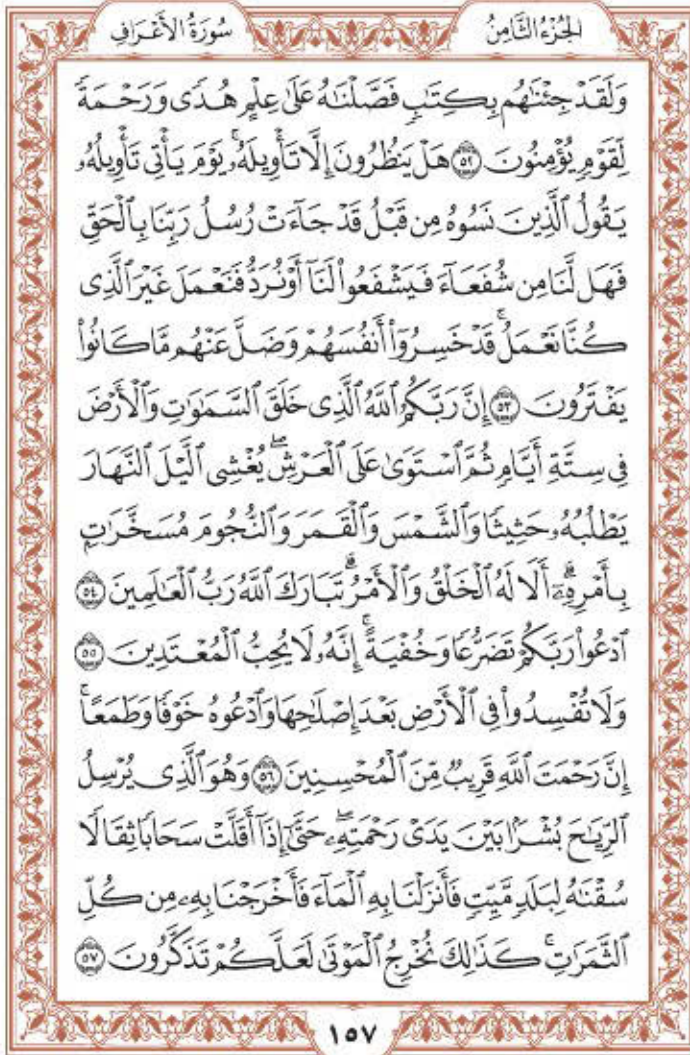 الجُزْءُ الثَّامِنُ سُورَةُ الأَعْرَافِ
وَلَقَدْ جِئْنَٰهُم بِكِتَٰبٍ فَصَّلْنَٰهُ عَلَىٰ عِلْمٍ هُدًى وَرَحْمَةً
لِّقَوْمٍ يُؤْمِنُونَ ٥٢ هَلْ يَنظُرُونَ إِلَّا تَأْوِيلَهُۥۚ يَوْمَ يَأْتِى تَأْوِيلُهُۥ
يَقُولُ ٱلَّذِينَ نَسُوهُ مِن قَبْلُ قَدْ جَآءَتْ رُسُلُ رَبِّنَا بِٱلْحَقِّ
فَهَل لَّنَا مِن شُفَعَآءَ فَيَشْفَعُوا۟ لَنَآ أَوْ نُرَدُّ فَنَعْمَلَ غَيْرَ ٱلَّذِى
كُنَّا نَعْمَلُۚ قَدْ خَسِرُوٓا۟ أَنفُسَهُمْ وَضَلَّ عَنْهُم مَّا كَانُوا۟
يَفْتَرُونَ ٥٣ إِنَّ رَبَّكُمُ ٱللَّهُ ٱلَّذِى خَلَقَ ٱلسَّمَٰوَٰتِ وَٱلْأَرْضَ
فِى سِتَّةِ أَيَّامٍ ثُمَّ ٱسْتَوَىٰ عَلَى ٱلْعَرْشِۖ يُغْشِى ٱلَّيْلَ ٱلنَّهَارَ
يَطْلُبُهُۥ حَثِيثًا وَٱلشَّمْسَ وَٱلْقَمَرَ وَٱلنُّجُومَ مُسَخَّرَٰتٍۭ
بِأَمْرِهِۦٓۗ أَلَا لَهُ ٱلْخَلْقُ وَٱلْأَمْرُۗ تَبَارَكَ ٱللَّهُ رَبُّ ٱلْعَٰلَمِينَ ٥٤
ٱدْعُوا۟ رَبَّكُمْ تَضَرُّعًا وَخُفْيَةًۚ إِنَّهُۥ لَا يُحِبُّ ٱلْمُعْتَدِينَ ٥٥
وَلَا تُفْسِدُوا۟ فِى ٱلْأَرْضِ بَعْدَ إِصْلَٰحِهَا وَٱدْعُوهُ خَوْفًا وَطَمَعًاۚ
إِنَّ رَحْمَتَ ٱللَّهِ قَرِيبٌ مِّنَ ٱلْمُحْسِنِينَ ٥٦ وَهُوَ ٱلَّذِى يُرْسِلُ
ٱلرِّيَٰحَ بُشْرًۢا بَيْنَ يَدَىْ رَحْمَتِهِۦۖ حَتَّىٰٓ إِذَآ أَقَلَّتْ سَحَابًا ثِقَالًا
سُقْنَٰهُ لِبَلَدٍ مَّيِّتٍ فَأَنزَلْنَا بِهِ ٱلْمَآءَ فَأَخْرَجْنَا بِهِۦ مِن كُلِّ
ٱلثَّمَرَٰتِۚ كَذَٰلِكَ نُخْرِجُ ٱلْمَوْتَىٰ لَعَلَّكُمْ تَذَكَّرُونَ ٥٧
١٥٧